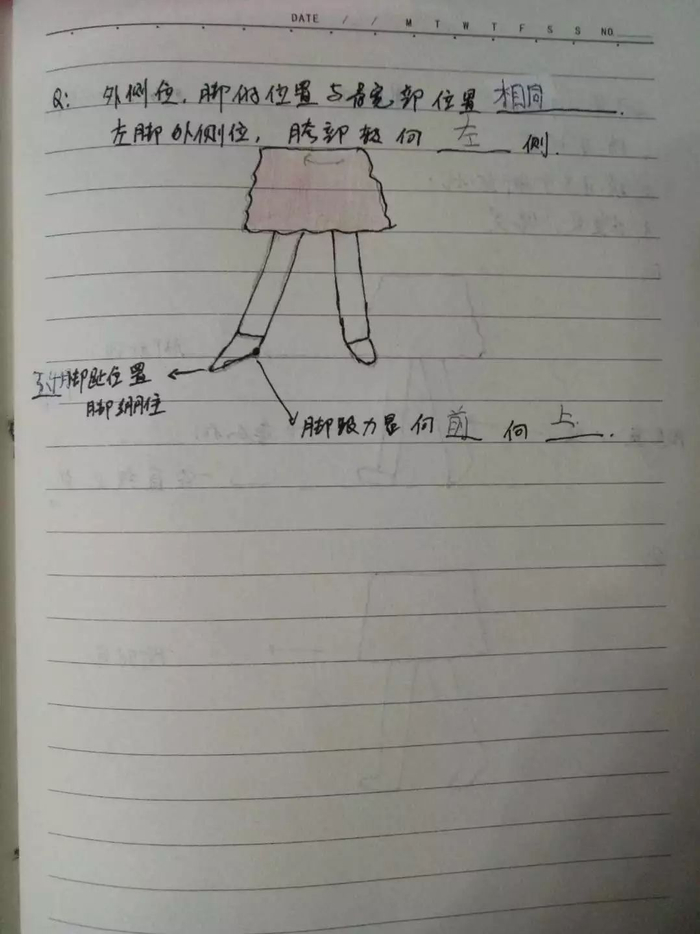 DATE / / M T W T F S S NO
Q: 外侧位，脚的位置与髋部位置 相同.
左脚外侧位，胯部 向 左 侧.
脚趾位置
脚绷住
脚跟力是向 前 向 上.